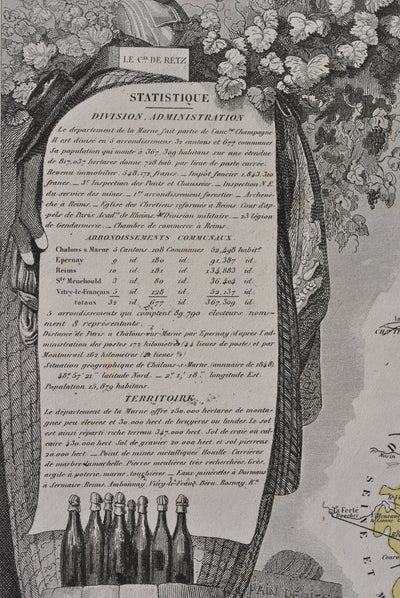 LE C.al DE RETZ
STATISTIQUE
DIVISION, ADMINISTRATION
Le département de la Marne fait partie de l'anc.ne Champagne
Il est divisé en 5 arrondissem. 32 cantons et 677 communes
Sa population qui monte à 367,309 habitans sur une étendue
de 817,037 hectares donne 728 hab. par lieue de poste carrée.
Revenu immobilier 548,172 francs _ Impôt foncier 1.843,310
francs. _ 3.e Inspection des Ponts et Chaussées. _ Inspection N.E.
du service des mines _ 1.er arrondissement forestier _ Archevê-
ché à Reims. _ Eglise des Chrétiens réformés à Reims. Cour d'ap-
pels de Paris. Acad.ie de Rheims. Division militaire. _ 23 légion
de Gendarmerie. _ Chambre de commerce à Reims.
ARRONDISSEMENTS COMMUNAUX
Chalons s. Marne 5 Cantons 108 Communes 52,498 habit.s
Epernay 9 id. 180 id. 91,387 id.
Reims 10 id. 181 id. 134,883 id.
S.te Menehould 3 id. 80 id. 36,404 id.
Vitry-le-Français 5 id. 128 id. 52,137 id.
totaux 32 677 367,309 id.
5 arrondissements qui comptent 89,790 électeurs nom-
ment 8 représentants.
Distance de Paris à Châlons-sur-Marne par Epernay (d'après l'ad-
ministration des postes 172 kilomètres (44 lieues de poste) et par
Montmirail 162 kilomètres
Situation géographique de Châlons-s-Marne (annuaire de 1848)
48.° 57.' 21." latitude Nord. _ 2.° 1.' 18." longitude Est.
Population 15,879 habitans.
TERRITOIRE
Le département de la Marne offre 250.000 hectares de monta-
gnes peu élevées et 30.000 hect. de bruyères ou landes. Le sol
est ainsi réparti riche terrain 347.000 hect. Sol de craie ou cal-
caire 430.000 hect. Sol de gravier 20.000 hect. et sol pierreux
20.000 hect. _ Point de mines métalliques Houille. Carrières
de marbre lumachelle. Pierres meulières très recherchées. Grès,
argile à poterie, marne, tourbières _ Eaux minérales à Dormans
à Sermaize, Reims, Ambonnay, Vitry-le-Franç. Bieu, Rosnay, &.a
la Ferté
SEINE ET M